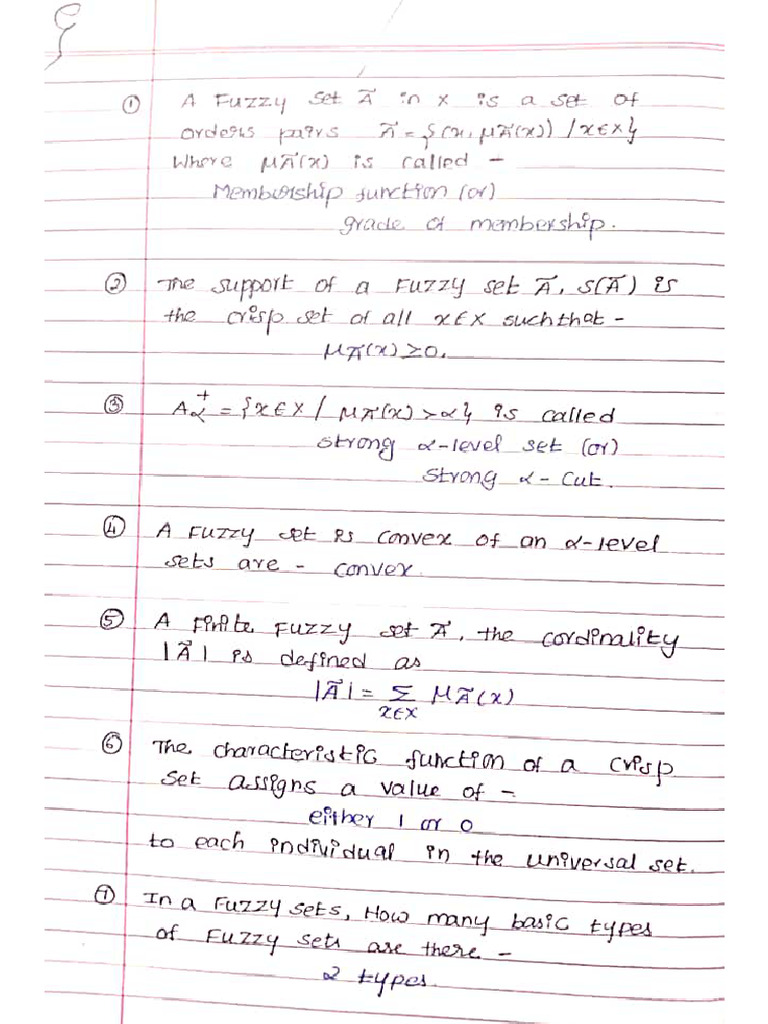 ① A Fuzzy set Ã in x is a set of
orders pairs Ã = {(x, μÃ(x)) / x∈X}
Where μÃ(x) is called -
Membership function (or)
grade of membership.
② The support of a Fuzzy set Ã, S(Ã) is
the crisp set of all x∈X such that -
μÃ(x) ≥ 0.
③ Aα⁺ = {x∈X / μÃ(x) > α} is called
strong α-level set (or)
strong α-cut.
④ A Fuzzy set is convex of an α-level
sets are - convex.
⑤ A finite Fuzzy set Ã, the cordinality
|Ã| is defined as
|Ã| = Σ μÃ(x)
x∈X
⑥ The characteristic function of a crisp
set assigns a value of -
either 1 or 0
to each individual in the universal set.
⑦ In a Fuzzy sets, How many basic types
of Fuzzy sets are there -
2 types.